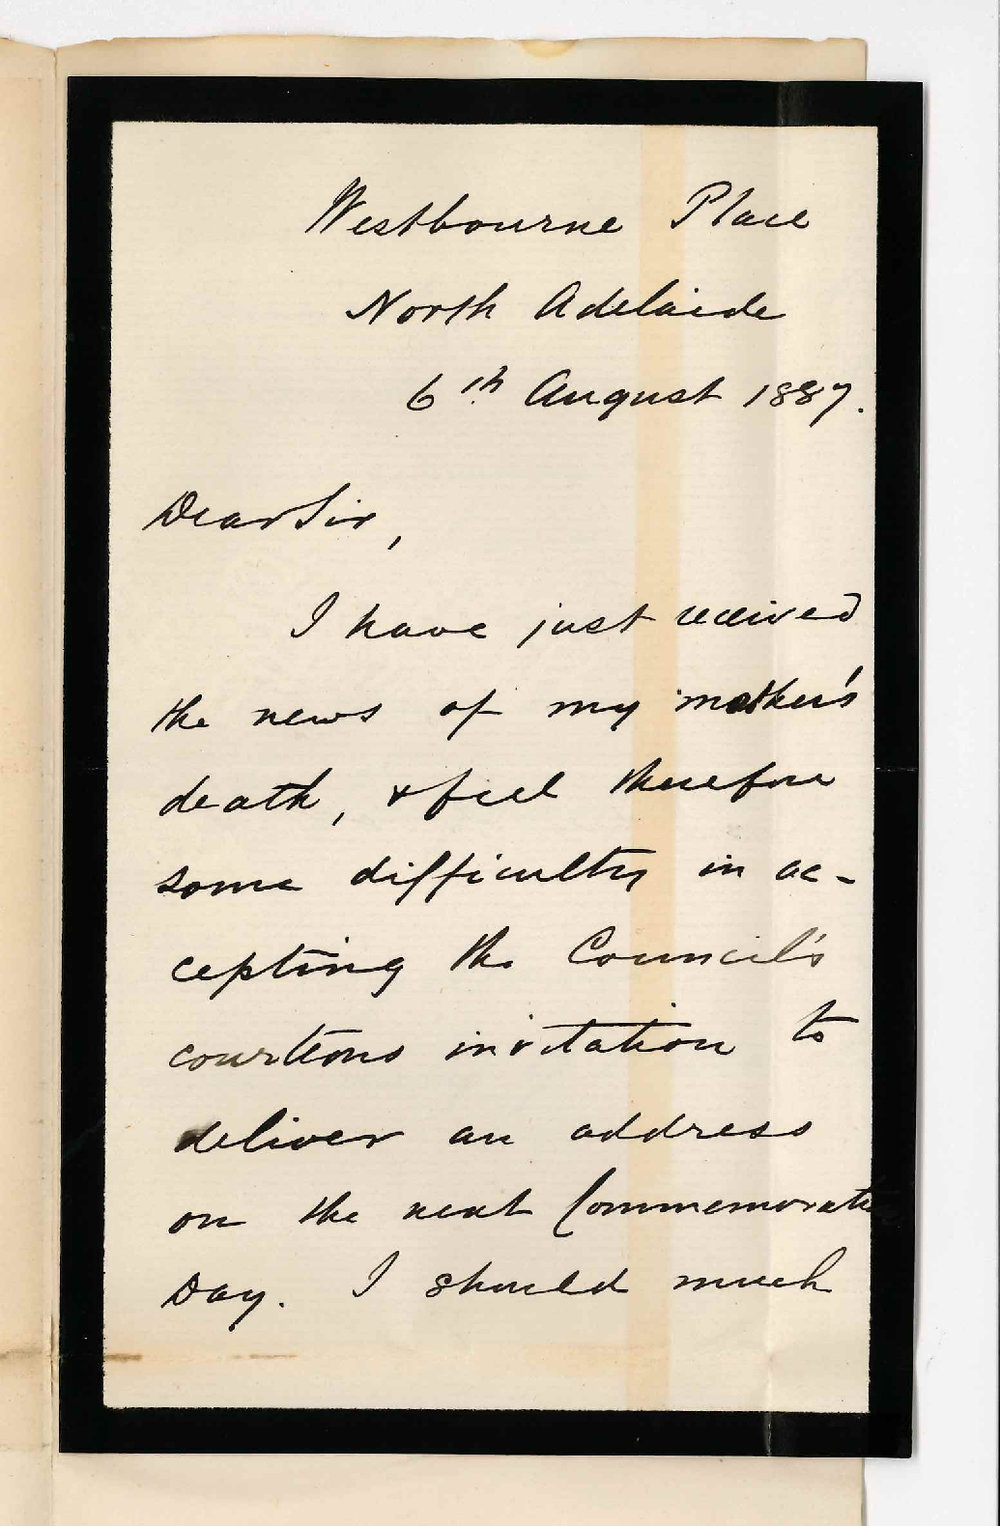 Westbourne Place
North Adelaide
6th August 1887.
Dear Sir,
I have just received
the news of my mother's
death, & feel therefore
some difficulty in ac-
cepting the Council's
courteous invitation to
deliver an address
on the next Commemorati
Day. I should much